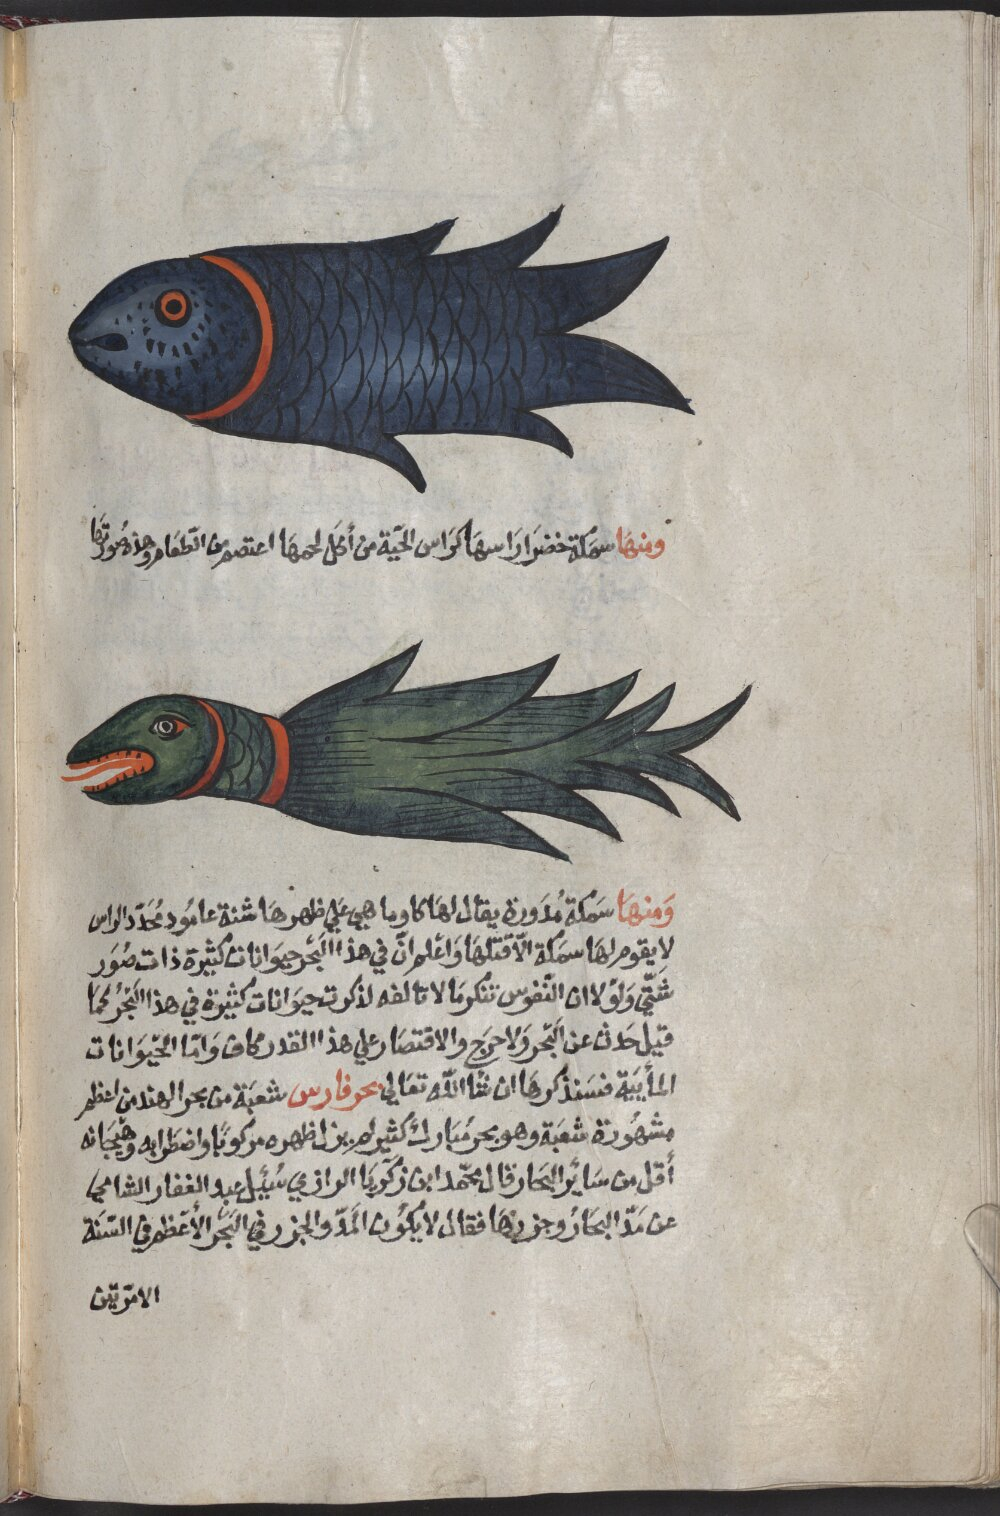 ومنها سمكة خضرا راسها كراس الحيّة من أكل لحمها اعتصم من الطعام وهذه صورتها
وَمنها سَمكة مُدَورة يقال لها كاوماهي على ظهرها شنة عامُود مُحَدّد الراس
لا يقوم لها سمكة الّا قتلها وَاعْلم انّ في هذا البَحْر حيَوانات كثيرة ذات صُوَر
شتّى وَلوْلا ان النّفوس تنكر ما لا تالفه لذكرت حيَوانات كثيرة في هذا البَحْر كما
قيل حَدث عن البَحر وَلا حرَج والاقتصار على هذا القدر كاف وَامّا الحَيوَانات
المأيية فسَنذكرها ان شا اللّه تعَالى بحر فارس شعبَة من بحر الهند من اعظم
مشهُورة شعبَة وهو بحر مُبَارك كثير لم يزل ظهره مركوبًا واضطرابه وهَيجانه
أقل من سَائر البحَار قال محمّد ابن زكريّا الرازي سُئيل عبد الغفار الشامي
عن مَدّ البحَار وجزرها فقال لا يكوُن المَدّ والجزر في البَحْر الأعظم في السّنَة
الا مرّتين